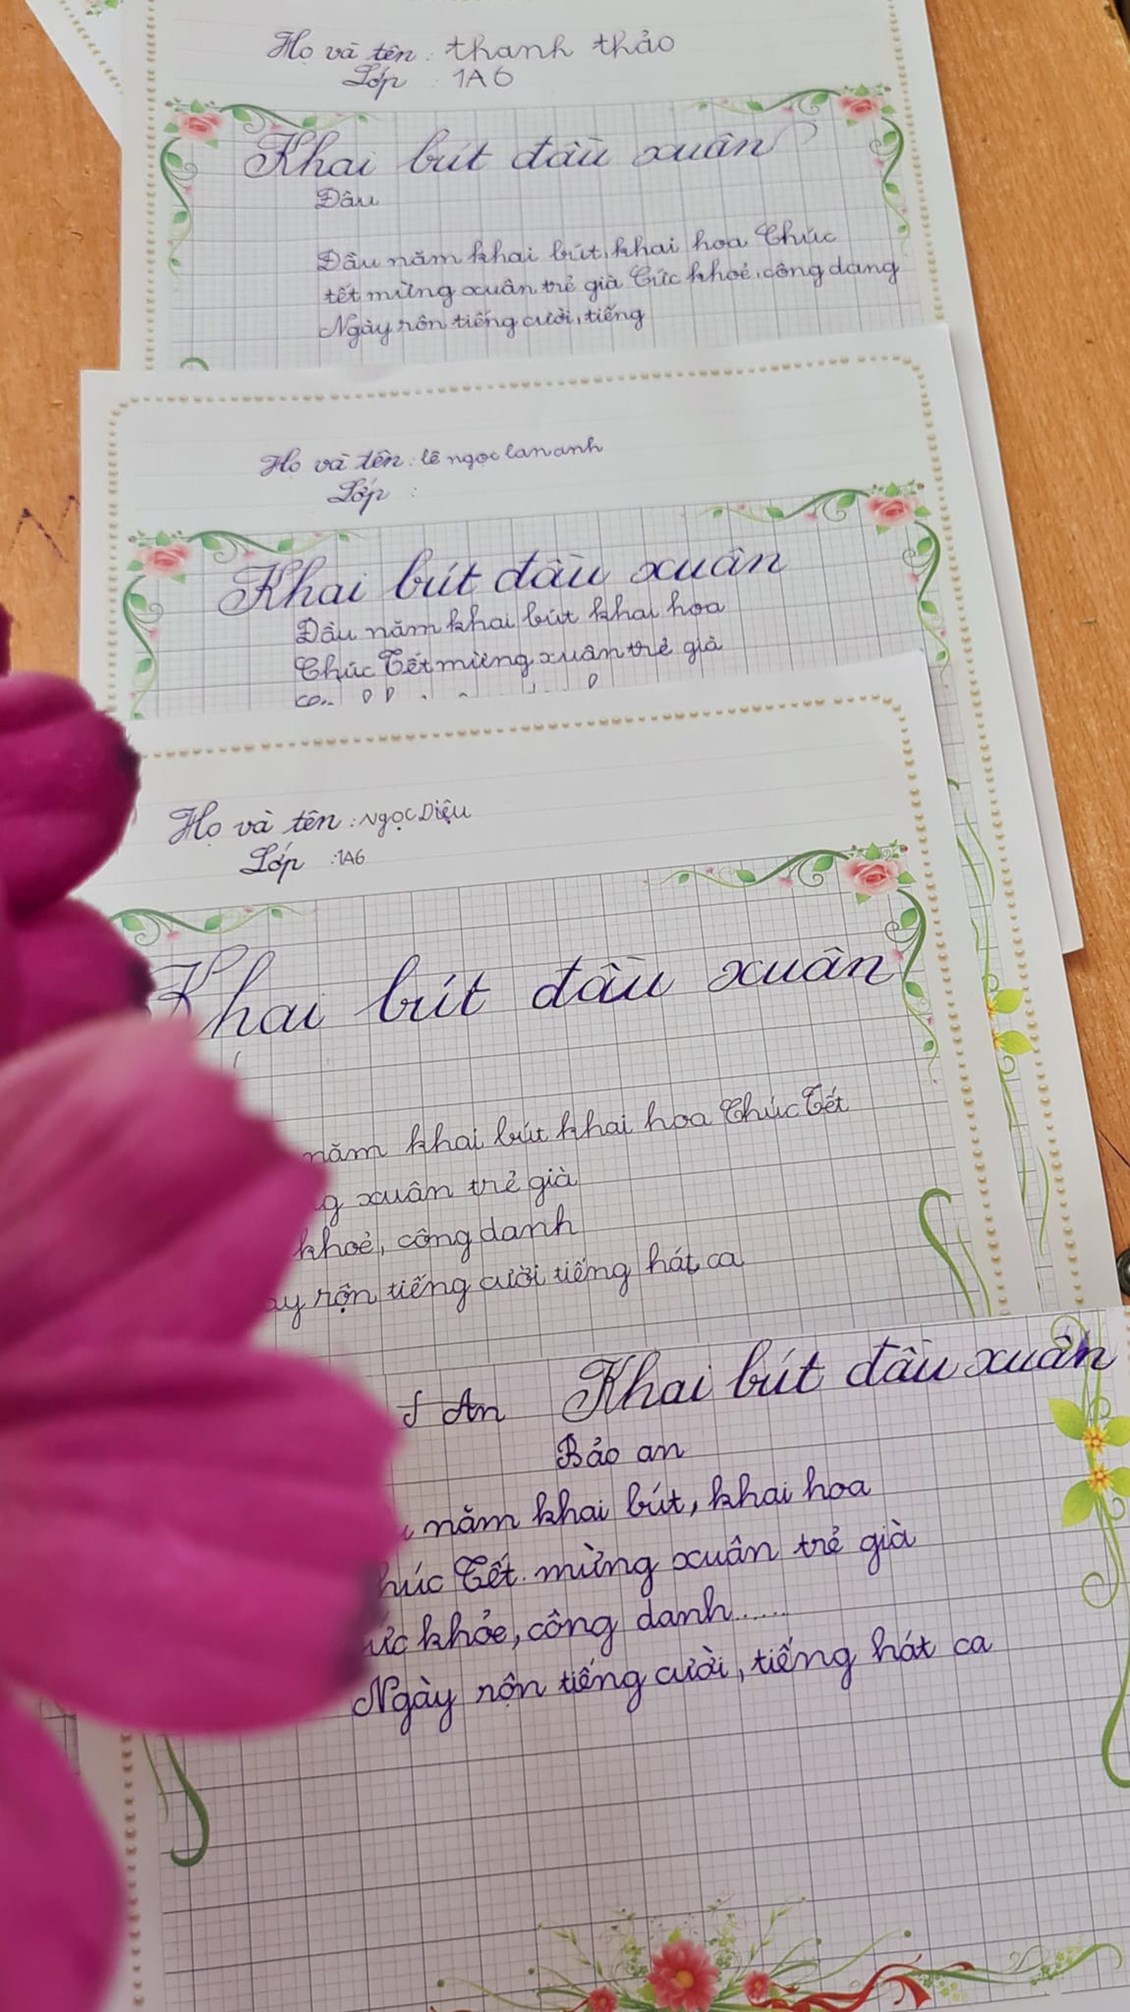 Họ và tên : thanh thảo
Lớp : 1A6
Khai bút đầu xuân
Đầu
Đầu năm khai bút, khai hoa Chúc
tết mừng xuân trẻ già Tức khoẻ, công dang
Ngày rôn tiếng cười, tiếng
Họ và tên : lê ngọc lan anh
Lớp :
Khai bút đầu xuân
Đầu năm khai bút khai hoa
Chúc Tết mừng xuân trẻ già
Họ và tên : Ngọc Diệu
Lớp : 1A6
Khai bút đầu xuân
năm khai bút khai hoa Chúc Tết
xuân trẻ già
khoẻ, công danh
rộn tiếng cười tiếng hát ca
An Khai bút đầu xuân
Bảo an
năm khai bút, khai hoa
Tết mừng xuân trẻ già
khỏe, công danh......
Ngày rộn tiếng cười, tiếng hát ca